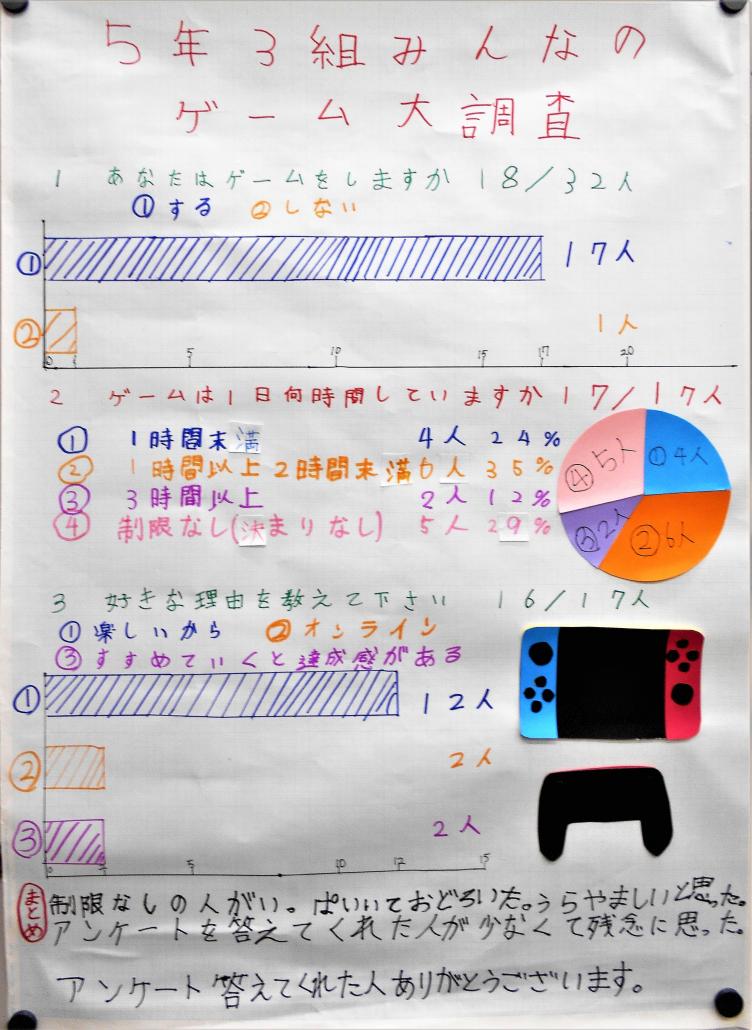 5年3組みんなの
ゲーム大調査
1 あなたはゲームをしますか 18/32人
①する ②しない
① 17人
② 1人
0 1 5 10 15 17 20
2 ゲームは1日何時間していますか 17/17人
① 1時間末満 4人 24%
② 1時間以上2時間末満 6人 35%
③ 3時間以上 2人 12%
④ 制限なし(決まりなし) 5人 29%
④5人 ①4人
③2人 ②6人
3 好きな理由を教えて下さい 16/17人
①楽しいから ②オンライン
③すすめていくと達成感がある
① 12人
② 2人
③ 2人
0 2 5 10 12 15
まとめ 制限なしの人がい。ぱいいておどろいた。うらやましいと思った。
アンケートを答えてくれた人が少なくて残念に思った。
アンケート答えてくれた人ありがとうございます。